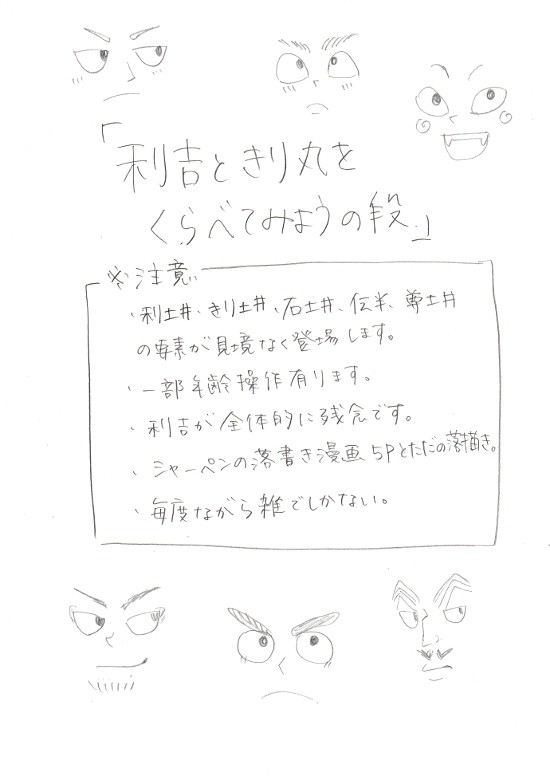 「利吉ときり丸を
くらべてみようの段」
※注意
・利土井、きり土井、石土井、伝半、尊土井
の要素が見境なく登場します。
・一部年齢操作有ります。
・利吉が全体的に残念です。
・シャーペンの落書き漫画5Pとただの落描き。
・毎度ながら雑でしかない。